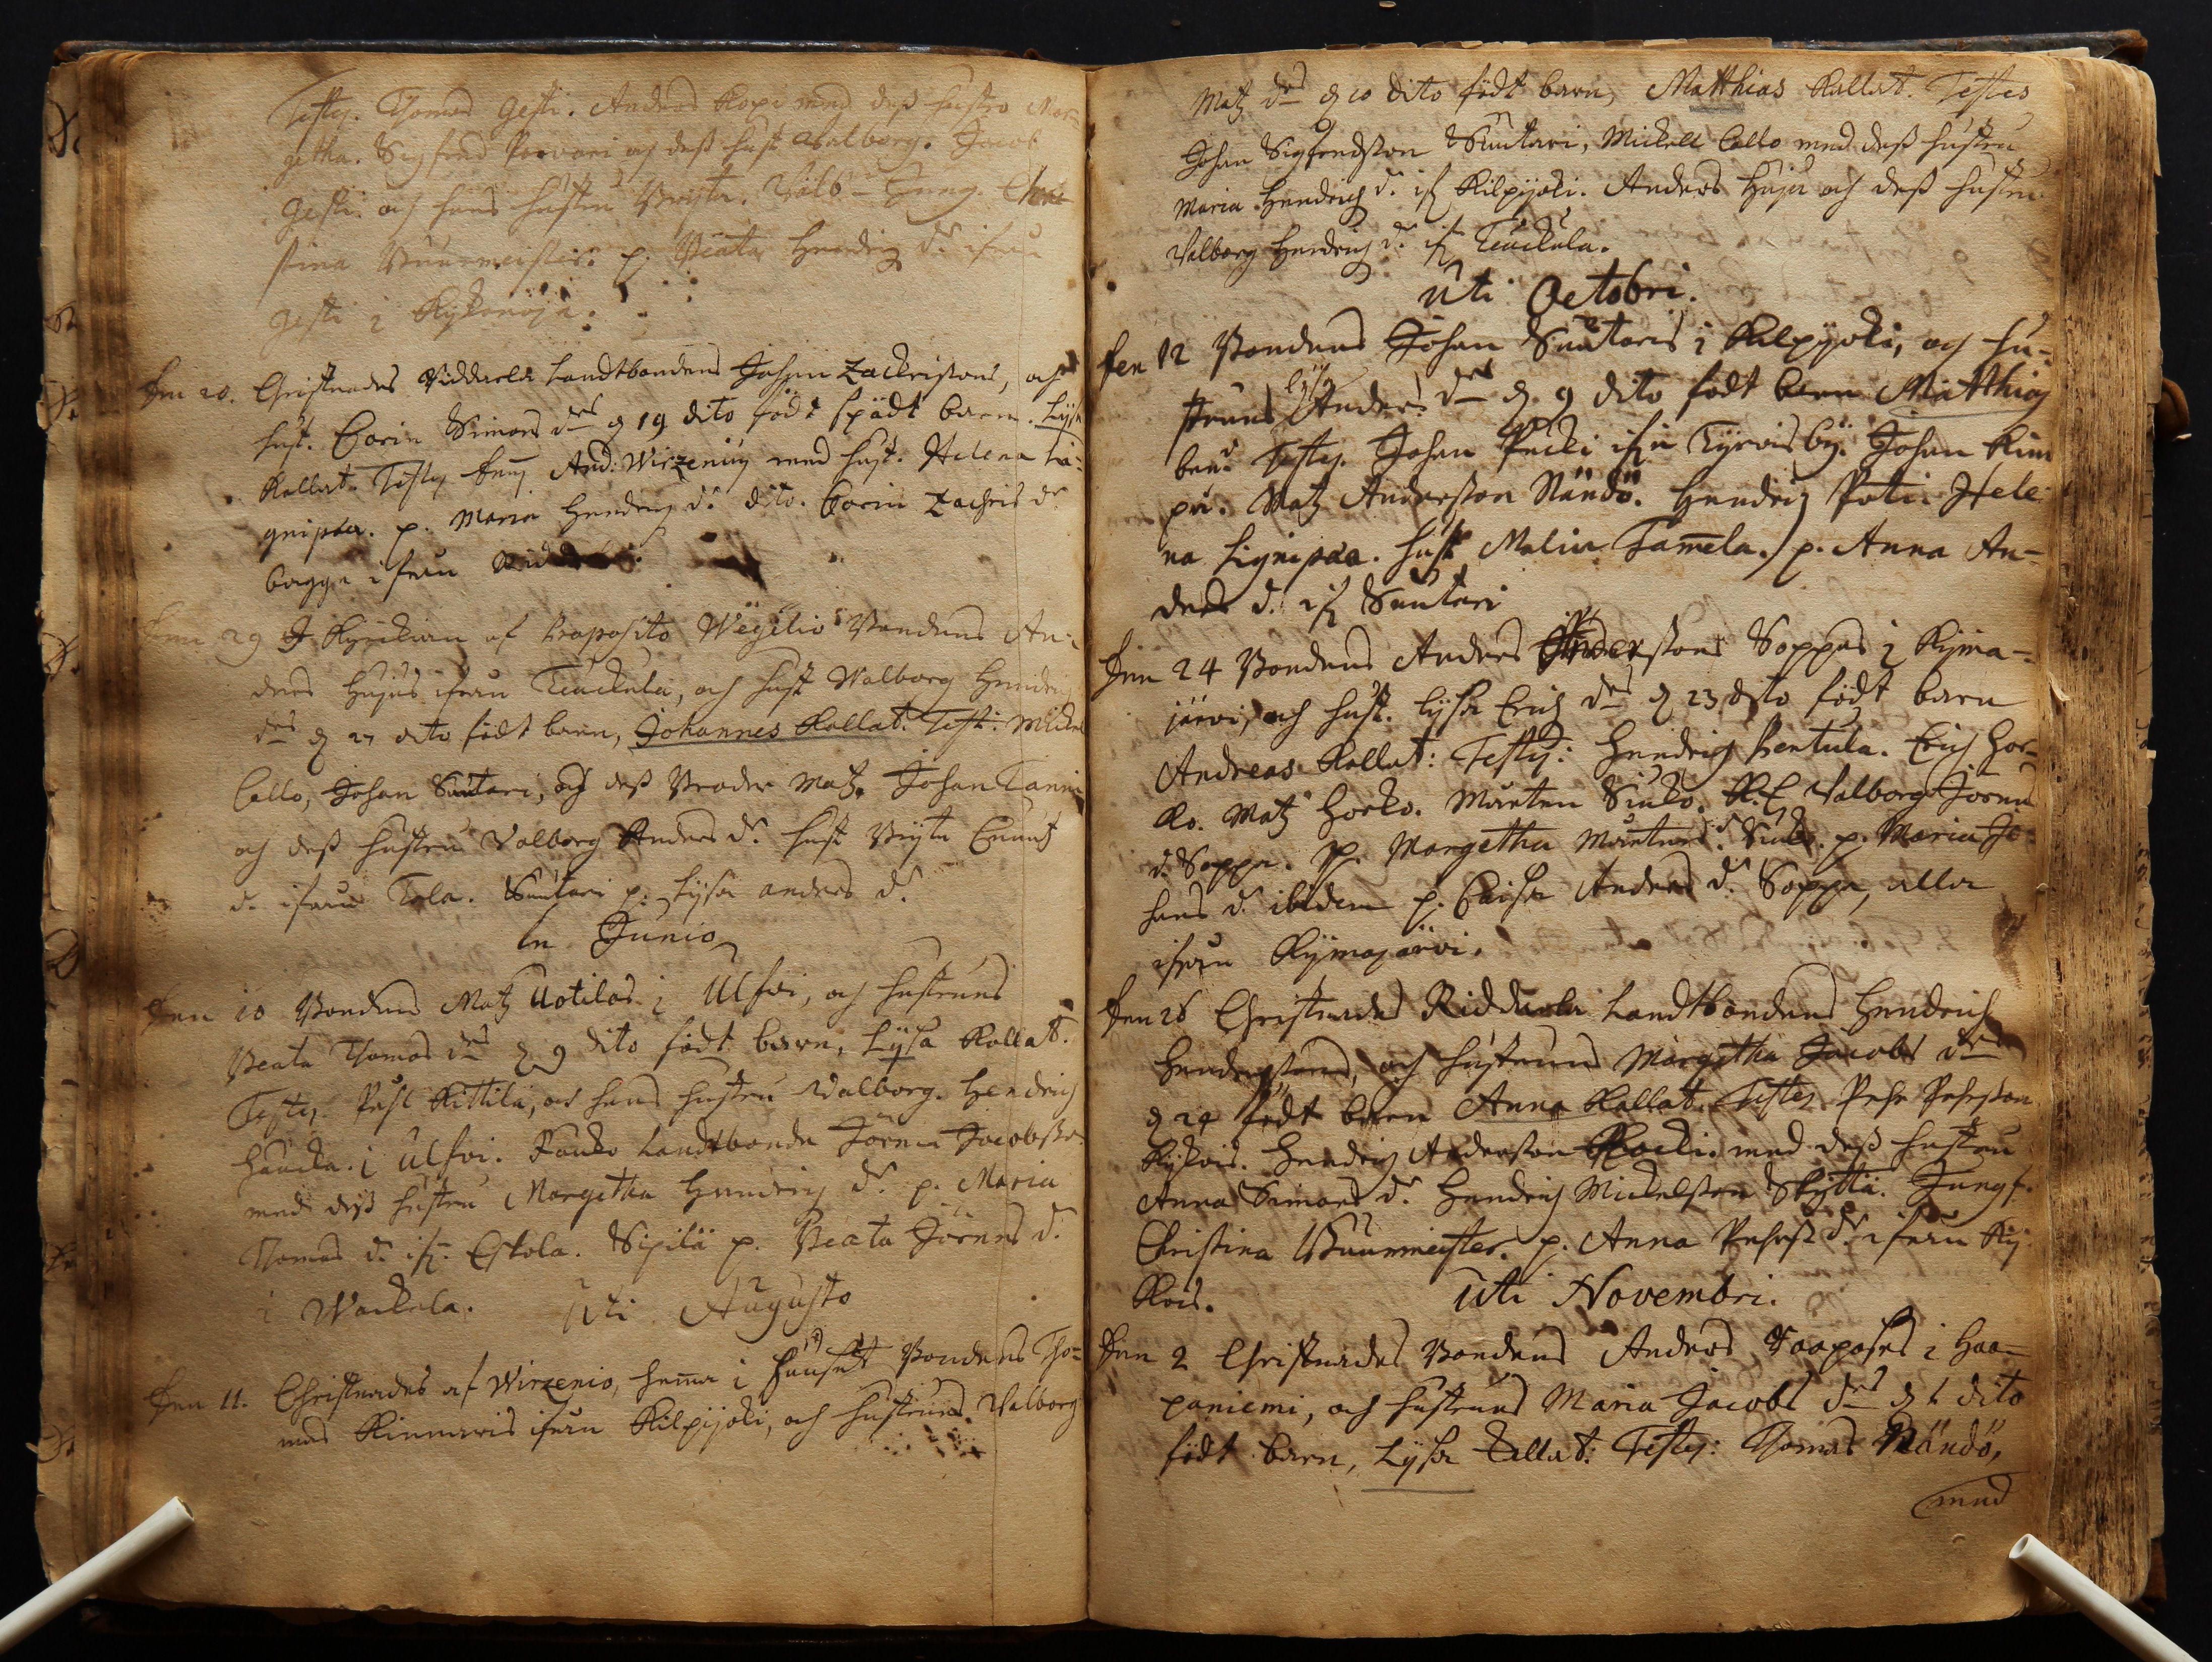 Testes. Thomas Gesti. Anders Kopi med dess hustro Mar-
getha. Sigfred Porvari och dess hust Walborg. Jacob
Gesti och hans hustru Brijta. Jung. Chri-
stina Buurmeister. p. Beata Hendrichs dr ifrån
Gesti i
Den 20. Christnades Riddarla Landtbondens Johan Zachrissons, och
hust. Carin Simons drs d 19 dito födt spädt barn. Lijsa
Kallat. Testes And: Wirzenius med hust. Helena Li-
gnipaea. p. Maria Hendrichs dr dito. Carin Zachris dr
Bagge ifrån
Den 29 I Kyrckian af Praeposito Wegelio Bondens An-
ders Hujus ifrån Teuckula, och hust Walborg Hendrichs
drs d 27 dito födt barn, Johannes Kallat. Test: Mickel
Callo, Johan Suutari, och dess Broder Matz. Johan Tanni
och dess hustru Valborg Anders dr hust Brijta Cnuutz
dr ifrån Tola. Suutari p. Lijsa anders dr
in Junio
Den 10 Bondens Matz Uotilas i Ulfvi, och hustruns
Beata Thomas drs d 9 dito födt barn, Lijsa Kallat.
Testes. Påhl Kittilä, och hans hustru Valborg. Hendrich
Haucka i Ulfvi. Landtbonde Jören Jacobsson
med dess hustru Margetha Hendrichs dr p. Maria
Thomas dr ifr. Eskola. Sipilä p. Beata Jörens dr
i Wackela. Uti Augusto
Den 11. Christnades af Wirzenio, hema i huuset Bondens Tho-
mas Kinnaris ifrån Kilpijoki, och hustruns Valborg
Matz drs d 10 dito födt barn, Matthias Kallat. Testes
Johan Sigfredsson Suutari, Mickell Callo med dess hustru
Maria Hendrichs dr ifr Kilpijoki. Anders Huju och dess hustru
Valborg Hendrichs dr ifr Teuckula.
Uti Octobri.
Den 12 Bondens Johan Suutaris i Kilpijoki, och hu-
struns Lijsa Anders drs d. 9 dito födt barn Matthias
ben: Testes. Johan Pecki ifrån Tyrvis by. Johan Kin
pu. Matz Andersson Nändö. Hendrich Poti. Hele-
na Lignipaea. hust Malin Tamela. p. Anna An-
ders dr ifr Suutari
Den 24 Bondens Anders Anderssons Soppas i Kijma-
järvi, och hust. Lijsa Erichs drs d 23 dito födt barn
Andreas Kallat: Testes: Hendrich Pentula. Erich Hor-
ko. Matz Horko. Mårten Siuko. Valborg Jörens
dr Soppa. p. Margetha Mårtens dr Siuko. p. Maria Jo-
hans dr ibidem p. Caisa Anders dr Soppa, alla
ifrån Kijmajärvi.
Den 26 Christnades Riddarla Landtbondens Hendrich
Hendrichssons, och hustruns Margetha Jacobs drs
d 24 födt barn Anna Kallat. Testes Pehr Pehrsson
Kijkois. Hendrich Andersson med dess hustru
Anna Simons dr Hendrich Mickelsson Skyttä. Jungf.
Christina Buurmeister. p. Anna Pehrs dr ifrån Kij-
kois. Uti Novembri.
Den 2 Christnades Bondens Anders i Haa-
paniemi, och hustruns Maria Jacobs drs d 1 dito
födt barn, Lijsa Kallat: Testes: Thomas Nändö,
med